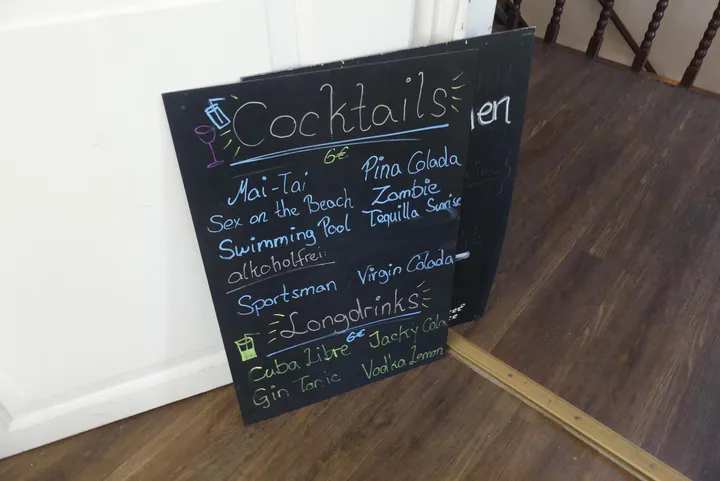 Cocktails
6€
Mai-Tai
Pina Colada
Sex on the Beach
Zombie
Swimming Pool
Tequilla Sunrise
alkoholfrei:
Sportsman
Virgin Colada
Longdrinks
6€
Cuba Libre
Jacky Cola
Gin Tonic
Vodka Lemon